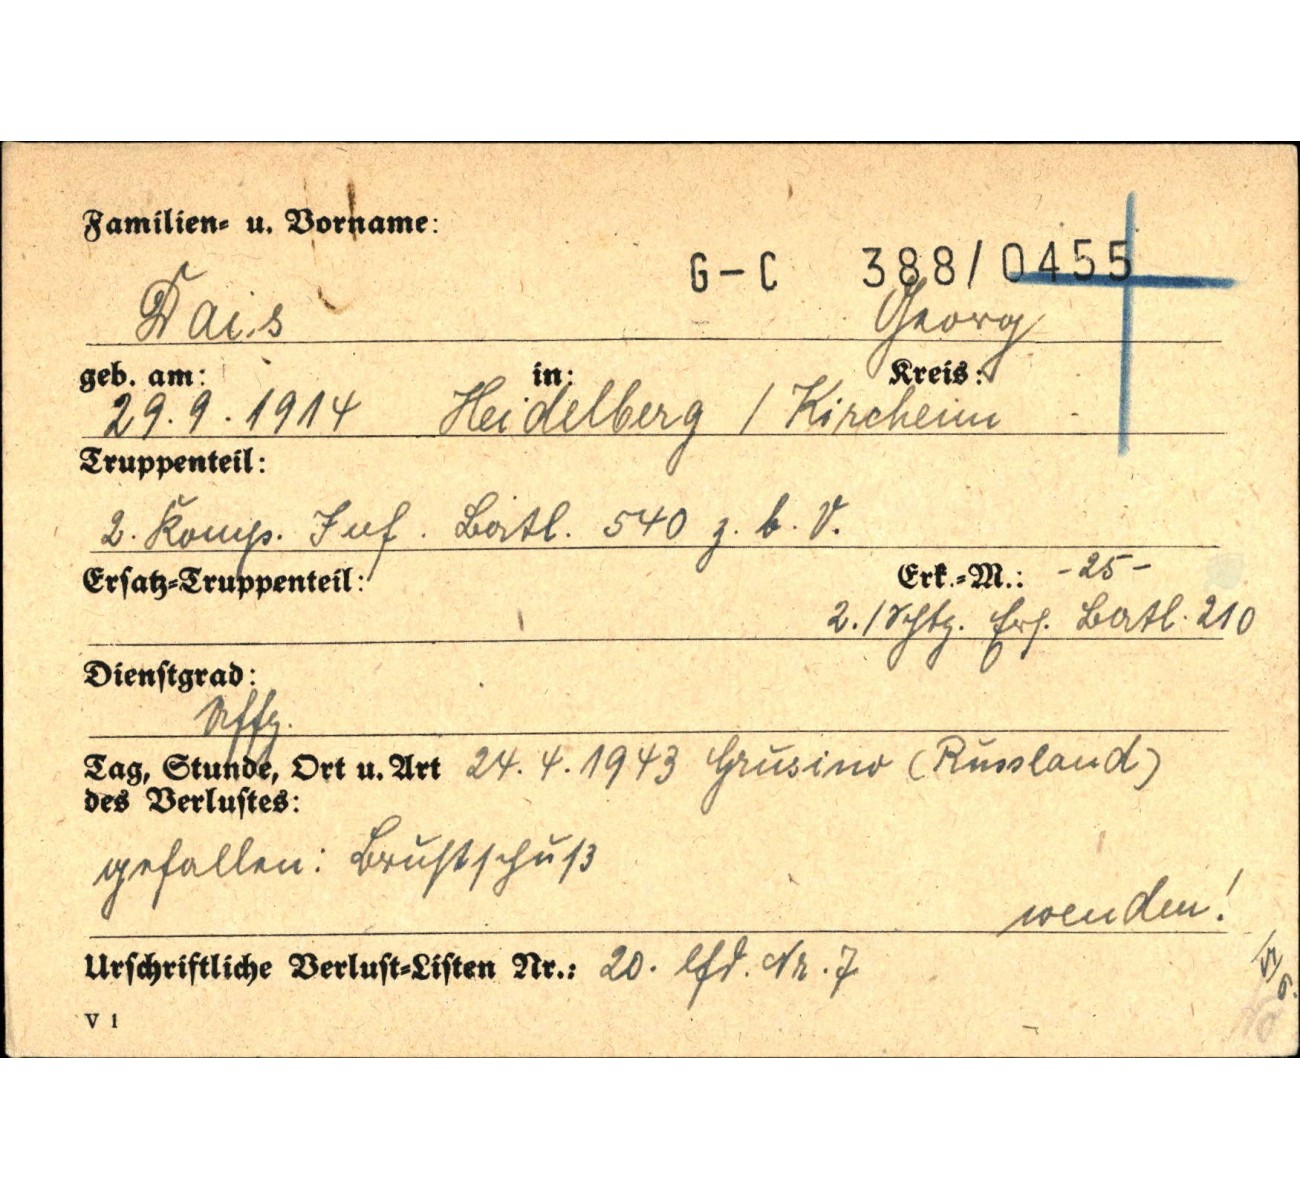 Familien- u. Vorname:
G-C 388/0455
Dais Georg
geb. am: in: Kreis:
29.9.1914 Heidelberg / Kircheim
Truppenteil:
2. Komp. Inf. Batl. 540 z. b. V.
Ersatz-Truppenteil: Erk.-M.: -25-
2./Schtz. Ers. Batl. 210
Dienstgrad:
Tag, Stunde, Ort u. Art 24.4.1943 Grusino (Russland)
des Verlustes:
gefallen: Brustschuß
wenden!
Urschriftliche Verlust-Listen Nr.: 20. lfd. Nr. 7
V 1